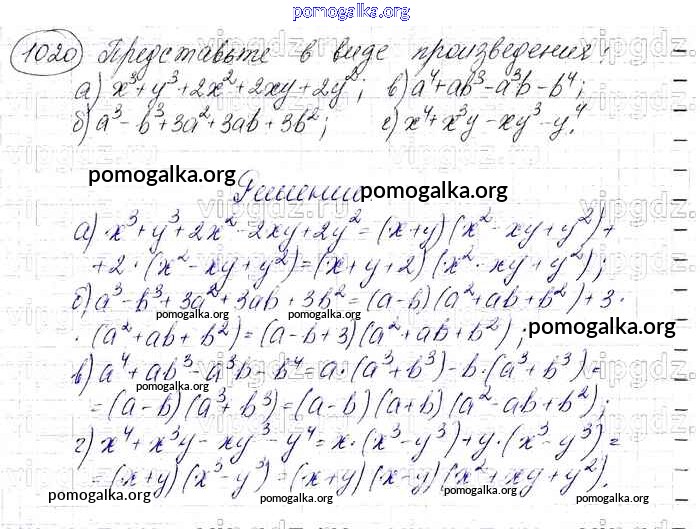 pomogalka.org
1020 Представьте в виде произведения:
а) x³+y³+2x²+2xy+2y²; в) a⁴+ab³-a³b-b⁴;
б) a³-b³+3a²+3ab+3b²; г) x⁴+x³y-xy³-y⁴.
pomogalka.org Решение. pomogalka.org
а) x³+y³+2x²-2xy+2y² = (x+y)(x²-xy+y²)+
+2·(x²-xy+y²)=(x+y+2)(x²-xy+y²);
б) a³-b³+3a²+3ab+3b²=(a-b)(a²+ab+b²)+3·
pomogalka.org pomogalka.org
·(a²+ab+b²)=(a-b+3)(a²+ab+b²); pomogalka.org
в) a⁴+ab³-a³b-b⁴=a·(a³+b³)-b·(a³+b³)=
pomogalka.org
=(a-b)(a³+b³)=(a-b)(a+b)(a²-ab+b²);
pomogalka.org pomogalka.org
г) x⁴+x³y-xy³-y⁴=x·(x³-y³)+y·(x³-y³)=
=(x+y)(x³-y³)=(x+y)(x-y)(x²+xy+y²).
pomogalka.org pomogalka.org pomogalka.org